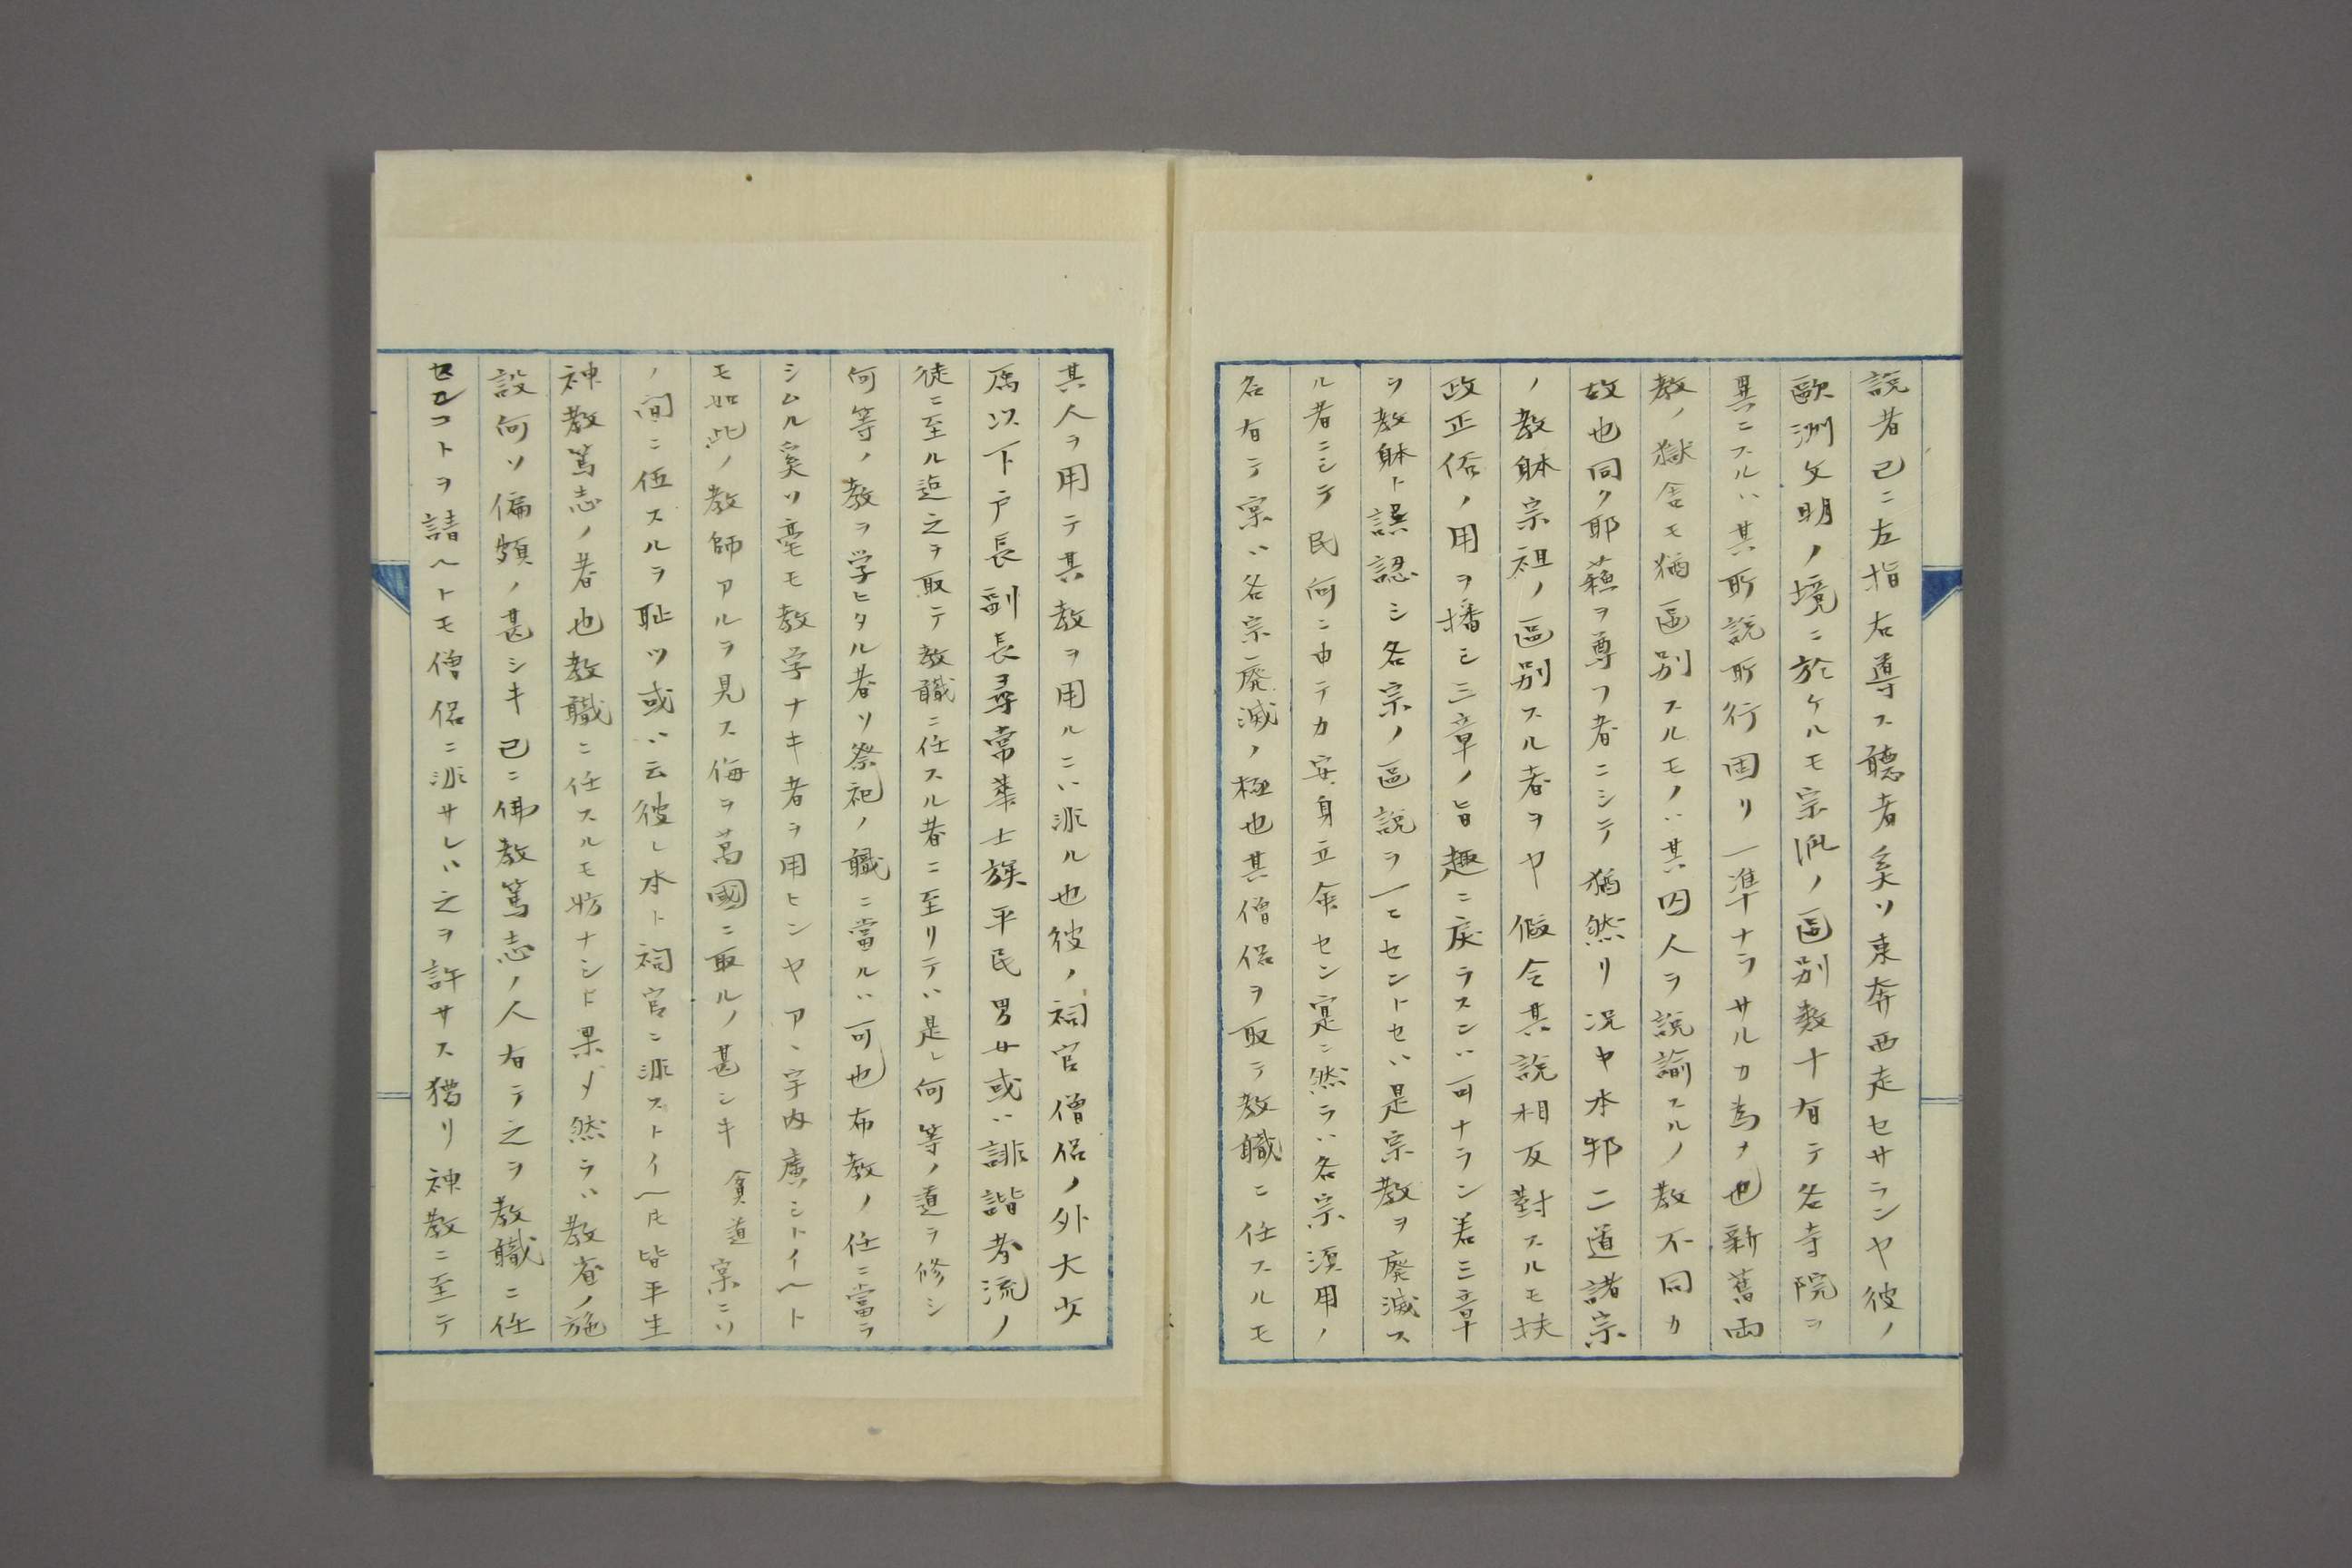 説者已ニ左指右導ス聽者奚ソ東奔西走セサランヤ彼ノ
歐洲文明ノ境ニ於ケルモ宗派ノ區別数十有テ各寺院ヲ
異ニスルハ其所説所行固リ一準ナラサルカ為ナ也新舊両
教ノ獄舎モ猶區別スルモノハ其囚人ヲ説諭スルノ教不同カ
故也同ク耶蘇ヲ尊フ者ニシテ猶然リ况ヤ本邦二道諸宗
ノ教躰宗祖ノ區別スル者ヲヤ假令其説相反對スルモ扶
政正俗ノ用ヲ播シ三章ノ旨趣ニ戻ラスンハ可ナラン若三章
ヲ教躰ト誤認シ各宗ノ區説ヲ一ニセントセハ是宗教ヲ廃滅ス
ル者ニシテ民何ニ由テカ安身立命セン寔ニ然ラハ各宗須用ノ
名有テ実ハ各宗廃滅ノ極也其僧侶ヲ取テ教職ニ任スルモ
其人ヲ用テ其教ヲ用ルニハ非ル也彼ノ祠官僧侶ノ外大少
属以下戸長副長ヨリ尋常華士族平民男女或ハ誹諧者流ノ
徒ニ至ル迠之ヲ取テ教職ニ任スル者ニ至リテハ是レ何等ノ道ヲ修シ
何等ノ教ヲ学ヒタル者ソ祭祀ノ職ニ當ルハ可也布教ノ任ニ當ラ
シムル奚ソ毫モ教学ナキ者ヲ用ヒンヤアヽ宇内廣シトイヘト
モ如此ノ教師アルヲ見ス侮ヲ萬國ニ取ルノ甚シキ 貧道実ニソ
ノ間ニ伍スルヲ恥ツ或ハ云彼レ本ト祠官ニ非ストイヘ𪜈皆平生
神教篤志ノ者也教職ニ任スルモ妨ナシト果〆然ラハ教省ノ施
設何ソ偏頗ノ甚シキ已ニ佛教篤志ノ人有テ之ヲ教職ニ任
センコトヲ請ヘトモ僧侶ニ非サレハ之ヲ許サス獨リ神教ニ至テ